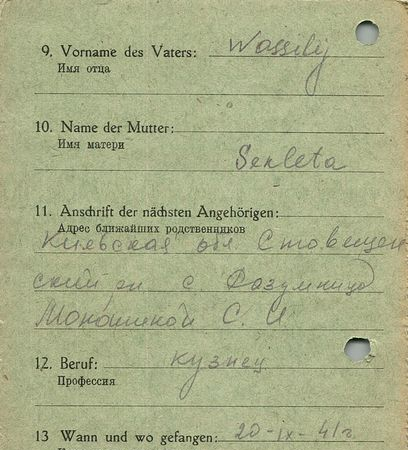 9. Vorname des Vaters: Wassilij
Имя отца
10. Name der Mutter:
Имя матери
Sekleta
11. Anschrift der nächsten Angehörigen:
Адрес ближайших родственников
Киевская обл Ставещен
ский рн с. Розумница
С. И
12. Beruf: кузнец
Профессия
13 Wann und wo gefangen: 20-IX-41г.